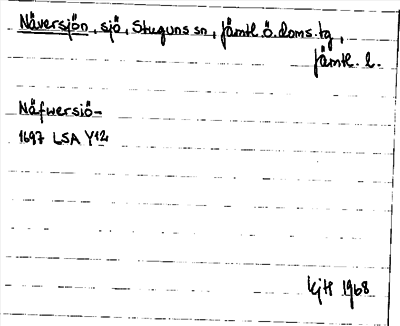 Näversjön, sjö, Stuguns sn, Jämtl. ö. doms. tg,
Jämtl. l.
Näfwersiö-
1697 LSA Y12
KjH 1968